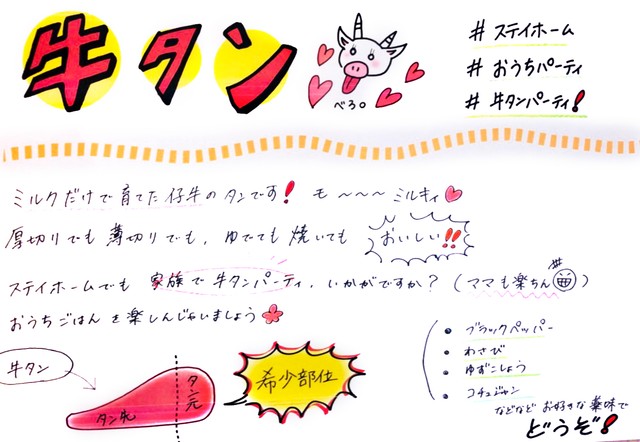 牛タン
べろ。
# ステイホーム
# おうちパーティ
# 牛タンパーティ!
ミルクだけで育てた仔牛のタンです! モ〜〜〜ミルキィ
厚切りでも薄切りでも、ゆでても焼いても おいしい!!
ステイホームでも 家族で牛タンパーティ、いかがですか?(ママも楽ちん)
おうちごはんを楽しんじゃいましょう
牛タン
タン先
タン元
希少部位
• ブラックペッパー
• わさび
• ゆずこしょう
• コチュジャン
などなど お好きな薬味で
どうぞ!